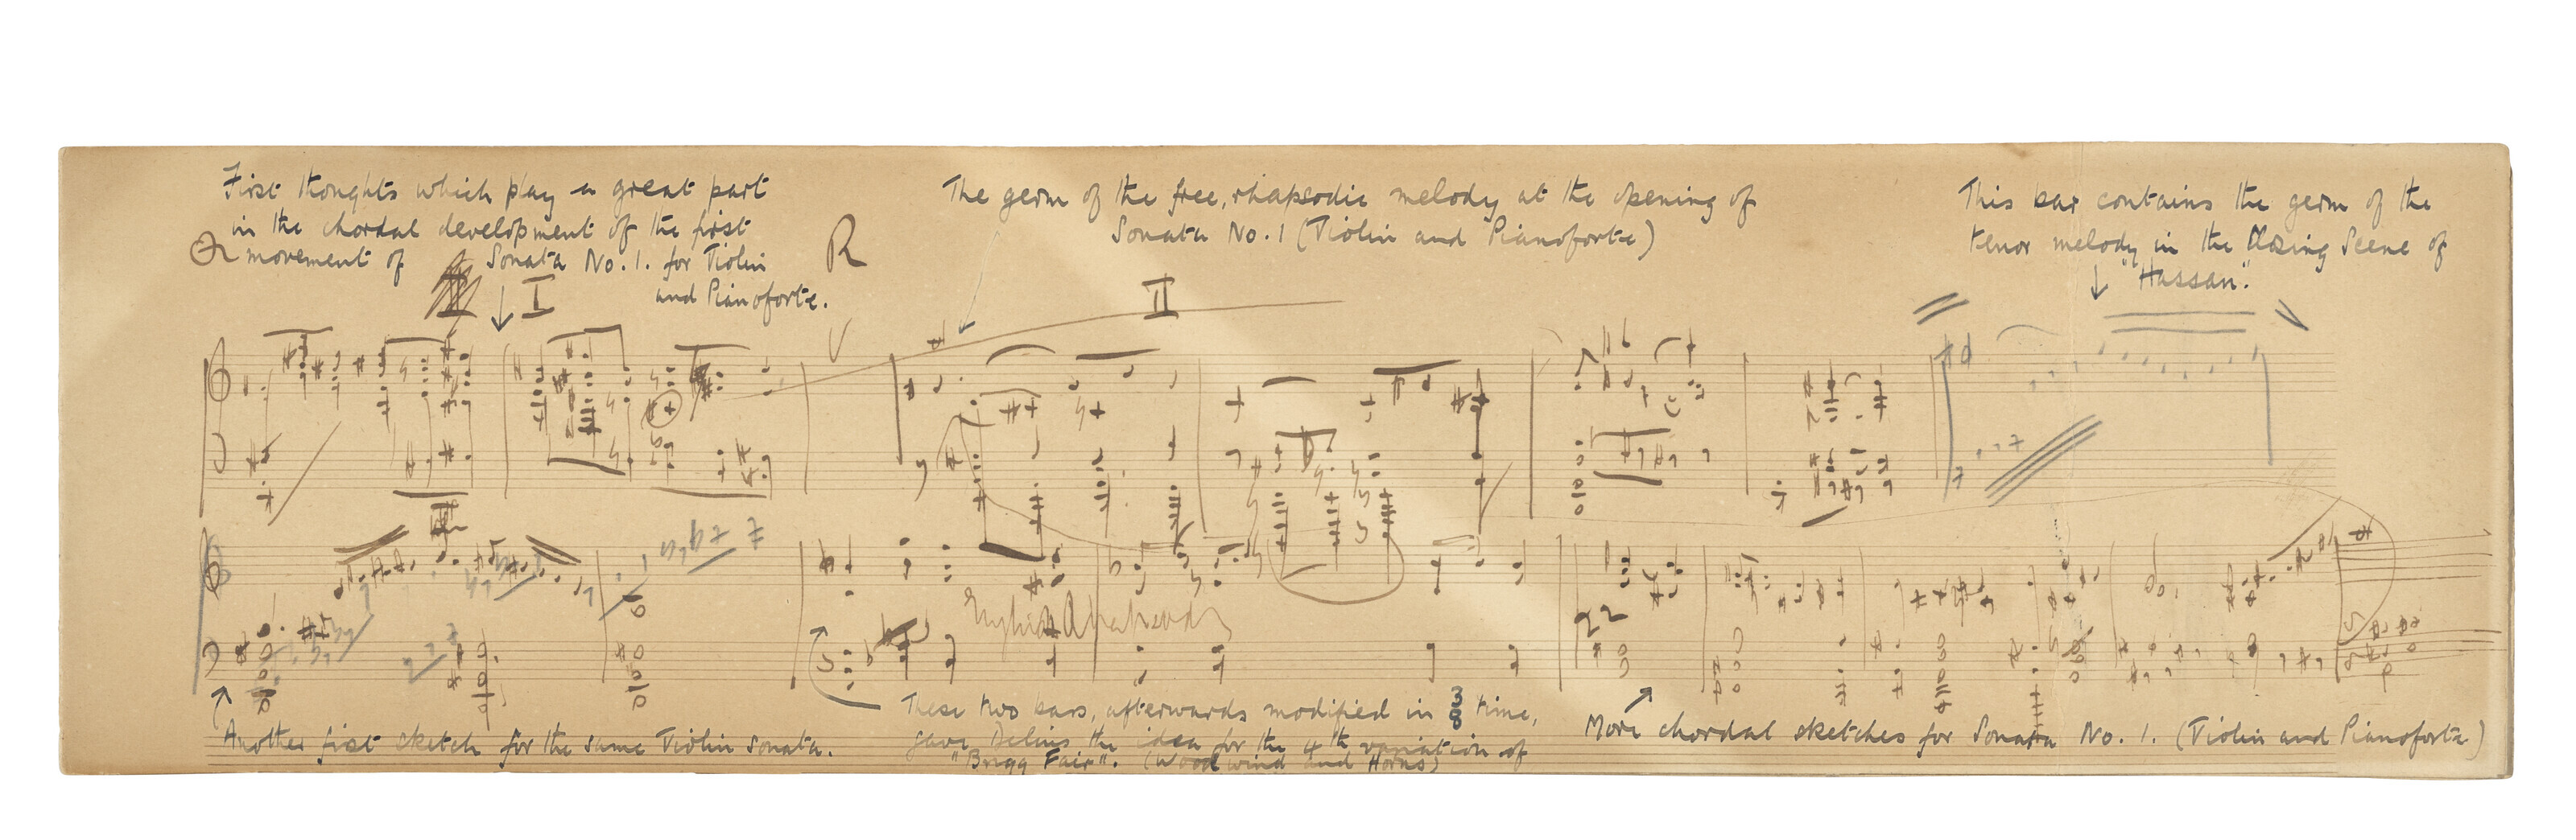 First thoughts which play a great part
in the chordal development of the first
movement of Sonata No. 1. for Violin
and Pianoforte.
I
R
The germ of the free, rhapsodic melody at the opening of
Sonata No. 1 (Violin and Pianoforte)
II
This bar contains the germ of the
tenor melody in the Closing Scene of
"Hassan".
Another first sketch for the same Violin sonata.
These two bars, afterwards modified in 3/8 time,
gave Delius the idea for the 4th variation of
"Brigg Fair". (Woodwind and Horns)
More chordal sketches for Sonata No. 1. (Violin and Pianoforte)